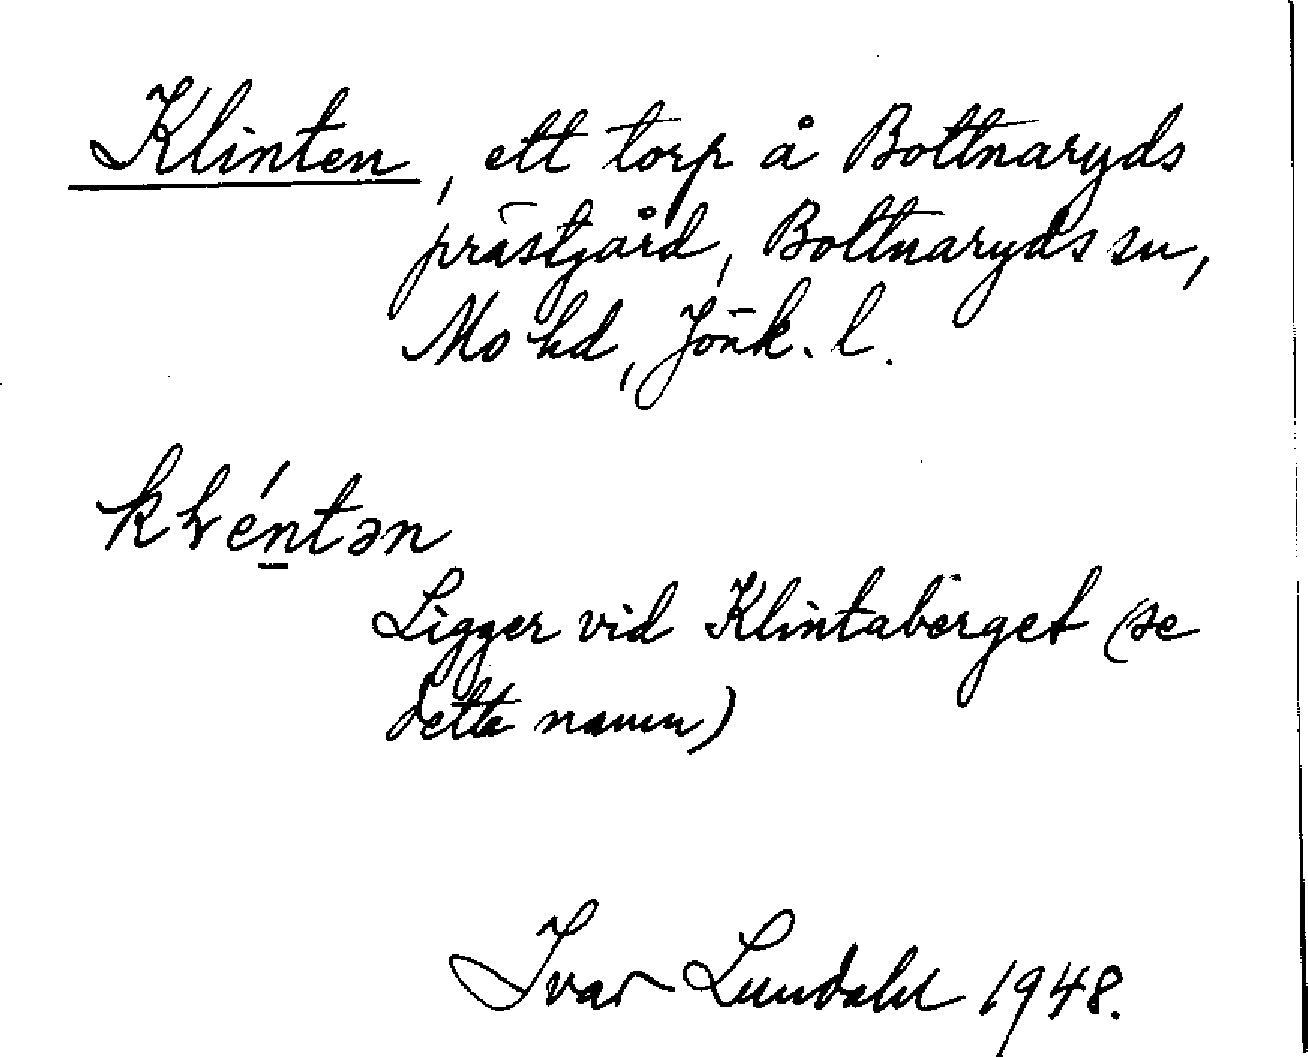 Klinten, ett torp å Bottnaryds
prästgård, Bottnaryds sn,
Mo hd, Jönk. l.
klén̲tən
Ligger vid Klintaberget (se
detta namn)
Ivar Lundahl 1948.